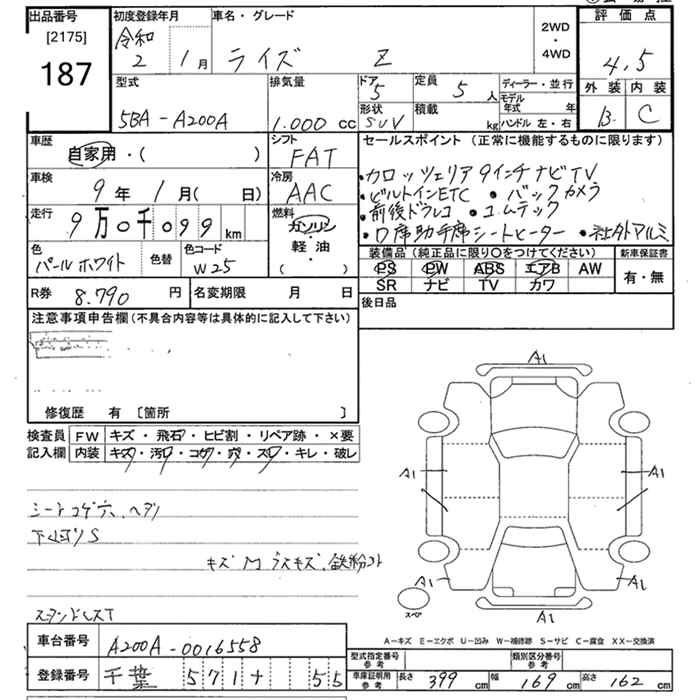 出品番号
[2175]
187
初度登録年月
令和
2 1月
車名・グレード
ライズ Z
2WD
・
4WD
評価点
4.5
外装 内装
B C
型式
5BA-A200A
排気量
1.000 cc
ドア
5
形状
SUV
定員
5 人
積載
kg
ディーラー・並行
モデル
年式 年
ハンドル 左・右
車歴
自家用・( )
シフト
FAT
車検
9年 1月( 日)
冷房
AAC
走行
9万0千099 km
燃料
ガソリン
軽・油
( )
色
パールホワイト
色替
色コード
W25
R券 8.790 円
名変期限 月 日
セールスポイント (正常に機能するものに限ります)
・カロッツェリア9インチナビTV
・ビルトインETC ・バックカメラ
・前後ドラレコ ・ユムテック
・D席助手席シートヒーター ・社外アルミ
装備品(純正品に限り○をつけてください)
PS PW ABS エアB AW
SR ナビ TV カワ
新車保証書
有・無
後日品
注意事項申告欄(不具合内容等は具体的に記入して下さい)
修復歴 有 [箇所 ]
検査員
記入欄
FW キズ・飛石・ヒビ割・リペア跡・×要
内装 キズ・汚レ・コゲ・穴・スレ・キレ・破レ
シートコゲ穴、ヘタリ
下廻りS
キズM ラスキズ、鉄粉コト
スタンドレスT
A1
A1
A1
A1
A1
A1
スペア
A-キズ E-エクボ U-凹み W-補修跡 S-サビ C-腐食 XX-交換済
車台番号 A200A-0016558
登録番号 千葉 571 ナ 55
型式指定番号
参考
類別区分番号
参考
車庫証明用
参考
長さ 399 cm 幅 169 cm 高さ 162 cm